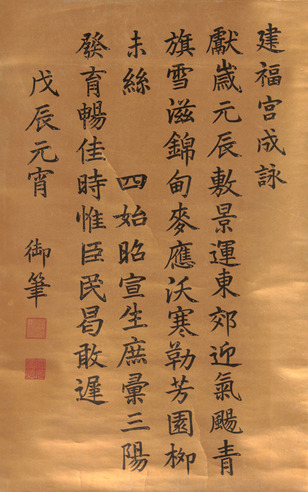 建福宮成詠
獻歲元辰敷景運東郊迎氣颺青
旗雪滋錦甸麥應沃寒勒芳園柳
未絲　四始昭宣生庶彙三陽
發育暢佳時惟臣民曷敢遲
戊辰元宵　御筆